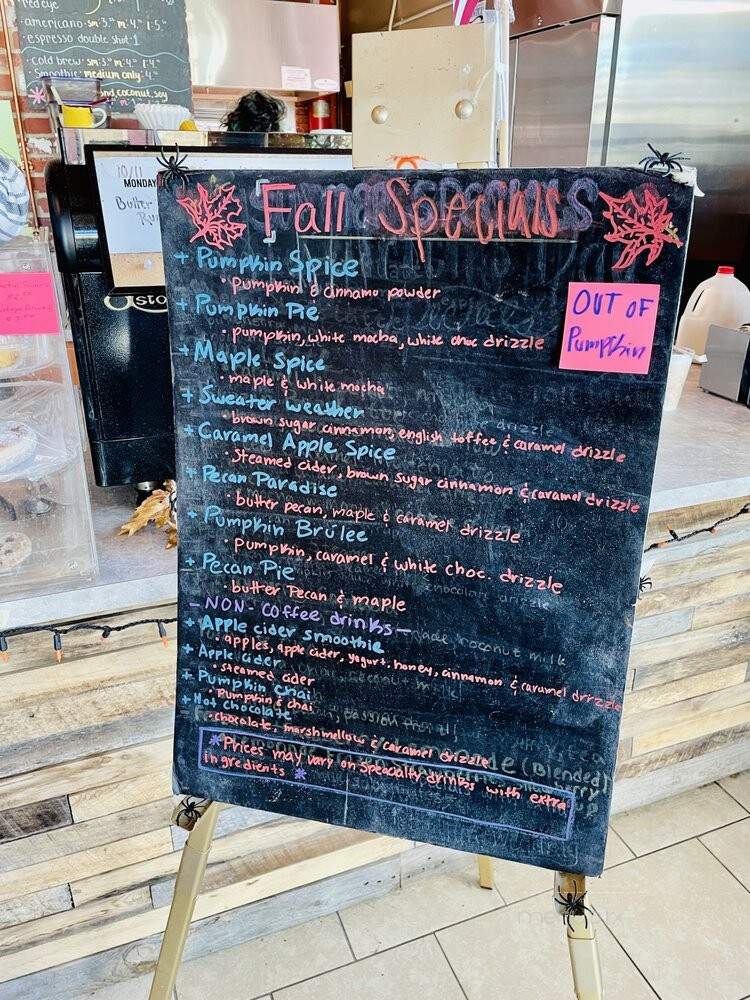 red eye
·americano: sm:3.⁰⁰ m:4.⁰⁰ l:5.⁰⁰
·espresso double shot·1
·cold brew: sm:3.⁰⁰ m:4.⁰⁰ l:4.⁰⁰
·Smoothie: medium only: 4.⁰⁰
coconut, soy
10/11
MONDAY
Butter
Ru
asto
Fall Specials
+ Pumpkin Spice
·Pumpkin & cinnamo powder
+ Pumpkin Pie
·pumpkin, white mocha, white choc drizzle
+ Maple Spice
·maple & white mocha
+ Sweater weather
·brown sugar cinnamon, english toffee & caramel drizzle
+ Caramel Apple Spice
·Steamed cider, brown sugar cinnamon & caramel drizzle
+ Pecan Paradise
·butter pecan, maple & caramel drizzle
+ Pumpkin Brulee
·Pumpkin, caramel & white choc. drizzle
+ Pecan Pie
·butter Pecan & maple
- NON- Coffee drinks -
+ Apple cider smoothie
·apples, apple cider, yogurt, honey, cinnamon & caramel drizzle
+ Apple cider
·steamed cider
+ Pumpkin chai
·Pumpkin & chai
+ Hot chocolate
·chocolate, marshmellow & caramel drizzle
*Prices may vary on specialty drinks with extra
ingredients *
OUT OF
Pumpkin